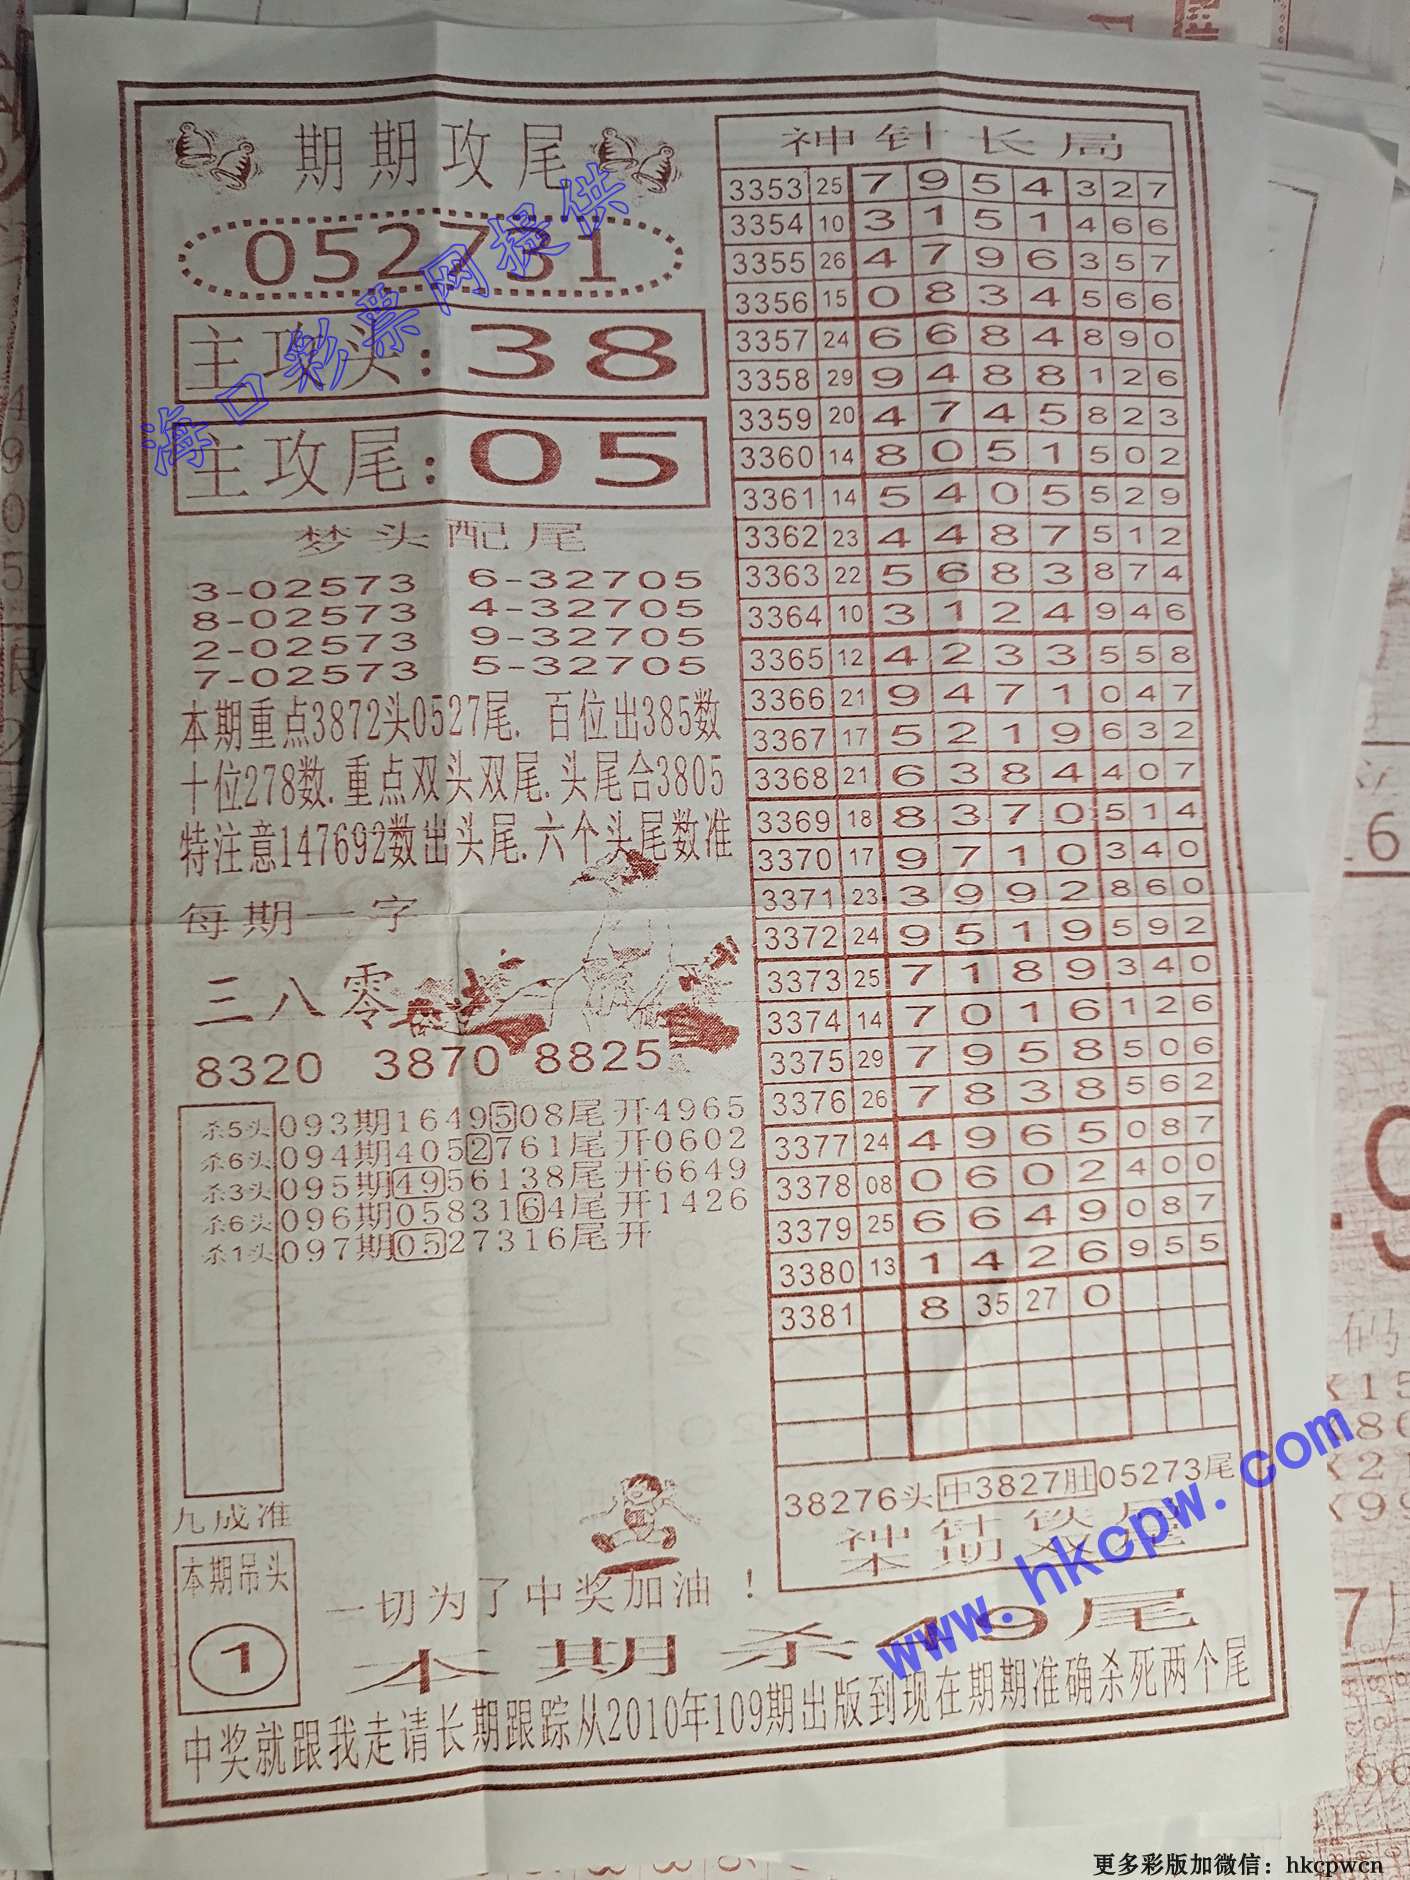 期期攻尾
052731
主攻头:38
主攻尾:05
梦头配尾
3-02573 6-32705
8-02573 4-32705
2-02573 9-32705
7-02573 5-32705
本期重点3872头0527尾. 百位出385数
十位278数.重点双头双尾.头尾合3805
特注意147692数出头尾.六个头尾数准
每期一字
三八零
8320 3870 8825
杀5头 093期1649508尾开4965
杀6头 094期4052761尾开0602
杀3头 095期4956138尾开6649
杀6头 096期0583164尾开1426
杀1头 097期0527316尾开
九成准
本期吊头
1
一切为了中奖加油！
神针长局
3353 25 7 9 5 4 3 2 7
3354 10 3 1 5 1 4 6 6
3355 26 4 7 9 6 3 5 7
3356 15 0 8 3 4 5 6 6
3357 24 6 6 8 4 8 9 0
3358 29 9 4 8 8 1 2 6
3359 20 4 7 4 5 8 2 3
3360 14 8 0 5 1 5 0 2
3361 14 5 4 0 5 5 2 9
3362 23 4 4 8 7 5 1 2
3363 22 5 6 8 3 8 7 4
3364 10 3 1 2 4 9 4 6
3365 12 4 2 3 3 5 5 8
3366 21 9 4 7 1 0 4 7
3367 17 5 2 1 9 6 3 2
3368 21 6 3 8 4 4 0 7
3369 18 8 3 7 0 5 1 4
3370 17 9 7 1 0 3 4 0
3371 23 3 9 9 2 8 6 0
3372 24 9 5 1 9 5 9 2
3373 25 7 1 8 9 3 4 0
3374 14 7 0 1 6 1 2 6
3375 29 7 9 5 8 5 0 6
3376 26 7 8 3 8 5 6 2
3377 24 4 9 6 5 0 8 7
3378 08 0 6 0 2 4 0 0
3379 25 6 6 4 9 0 8 7
3380 13 1 4 2 6 9 5 5
3381 8 35 27 0
38276头 中3827肚 05273尾
神针铁
本期双
本期杀49尾
中奖就跟我走请长期跟踪从2010年109期出版到现在期期准确杀死两个尾
海口彩票网提供
www.hkcpw.com
更多彩版加微信：hkcpwcn